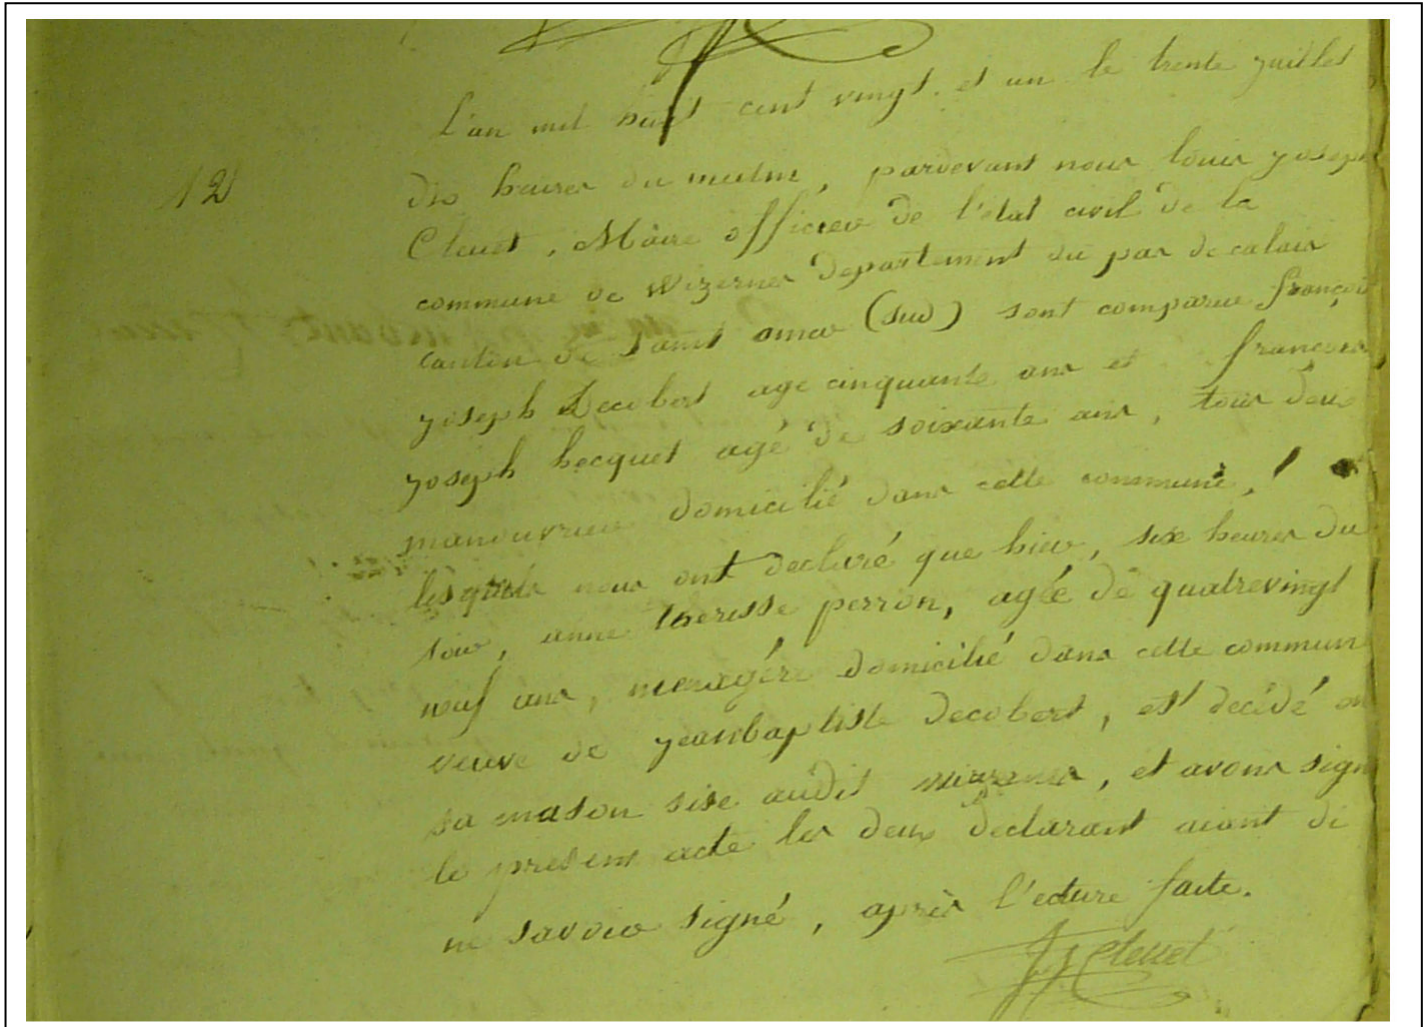 L'an mil huit cent vingt et un le trente juillet
12
dix heures du matin, pardevant nous louis joseph
Cleuet, Maire officier de l'état civil de la
commune de Wizernes departement du pas de calais
canton de saint omer (sud) sont comparu françois
joseph Decobert age cinquante ans et françois
joseph hecquet agé de soixante ans, tous deux
manouvrier domicilié dans cette commune,
lesquels nous ont declaré que hier, six heures du
soir, anne theresse perron, agée de quatrevingt
neuf ans, menagère domicilié dans cette commun
veuve de jeanbaptiste decobert, est décédé en
sa maison sise audit wizernes, et avons sign
le present acte les deux declarant aiant di
ne savoir signé, après l'ecture faite.
Cleuet